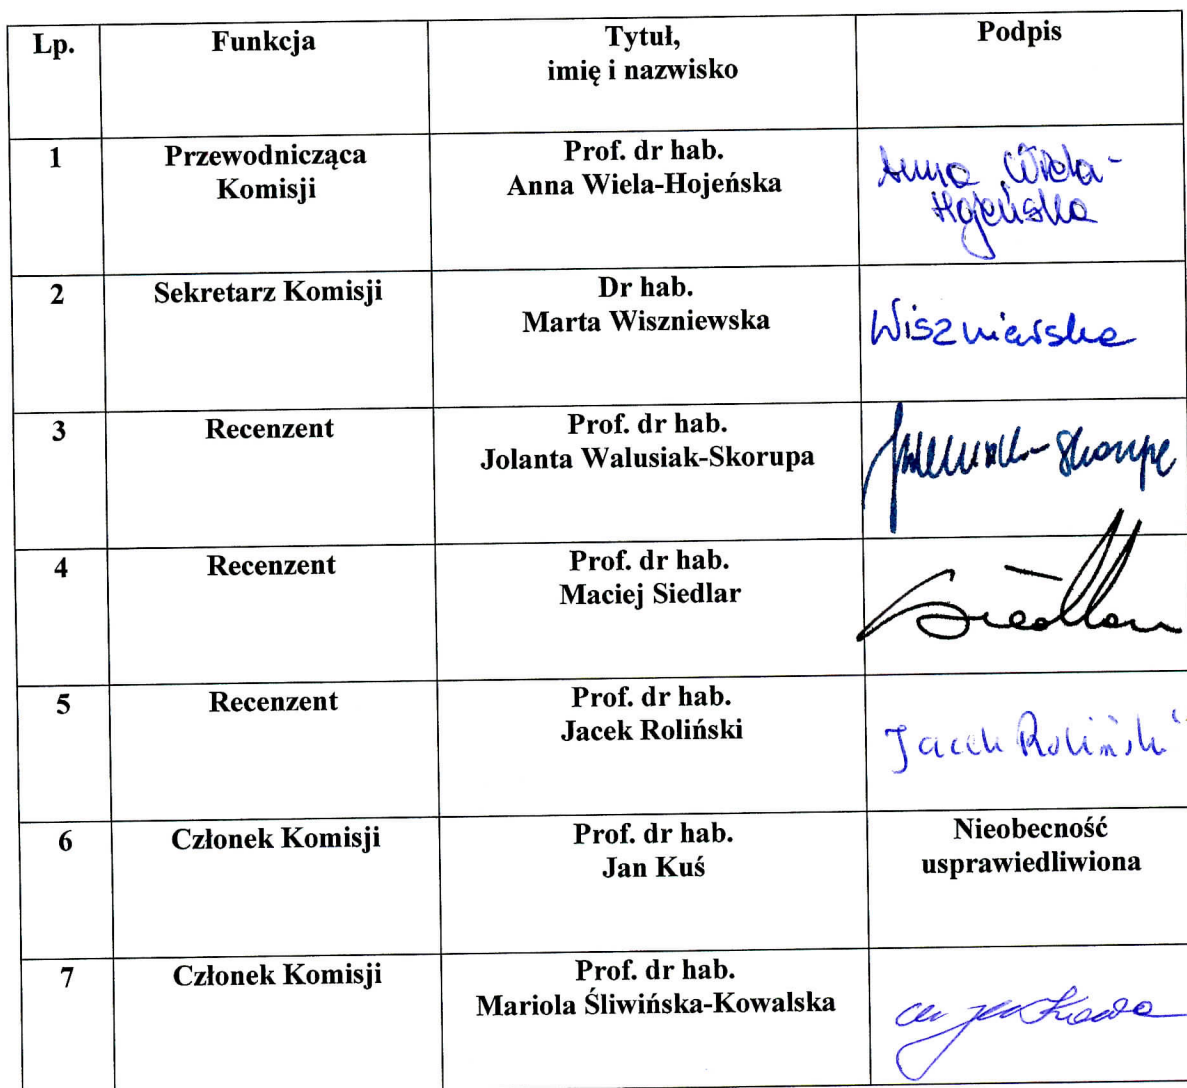 Lp.
Funkcja
Tytuł,
imię i nazwisko
Podpis
1
Przewodnicząca
Komisji
Prof. dr hab.
Anna Wiela-Hojeńska
Anna Wiela-
Hojeńska
2
Sekretarz Komisji
Dr hab.
Marta Wiszniewska
Wiszniewska
3
Recenzent
Prof. dr hab.
Jolanta Walusiak-Skorupa
Walusiak-Skorupa
4
Recenzent
Prof. dr hab.
Maciej Siedlar
Siedlar
5
Recenzent
Prof. dr hab.
Jacek Roliński
Jacek Roliński
6
Członek Komisji
Prof. dr hab.
Jan Kuś
Nieobecność
usprawiedliwiona
7
Członek Komisji
Prof. dr hab.
Mariola Śliwińska-Kowalska